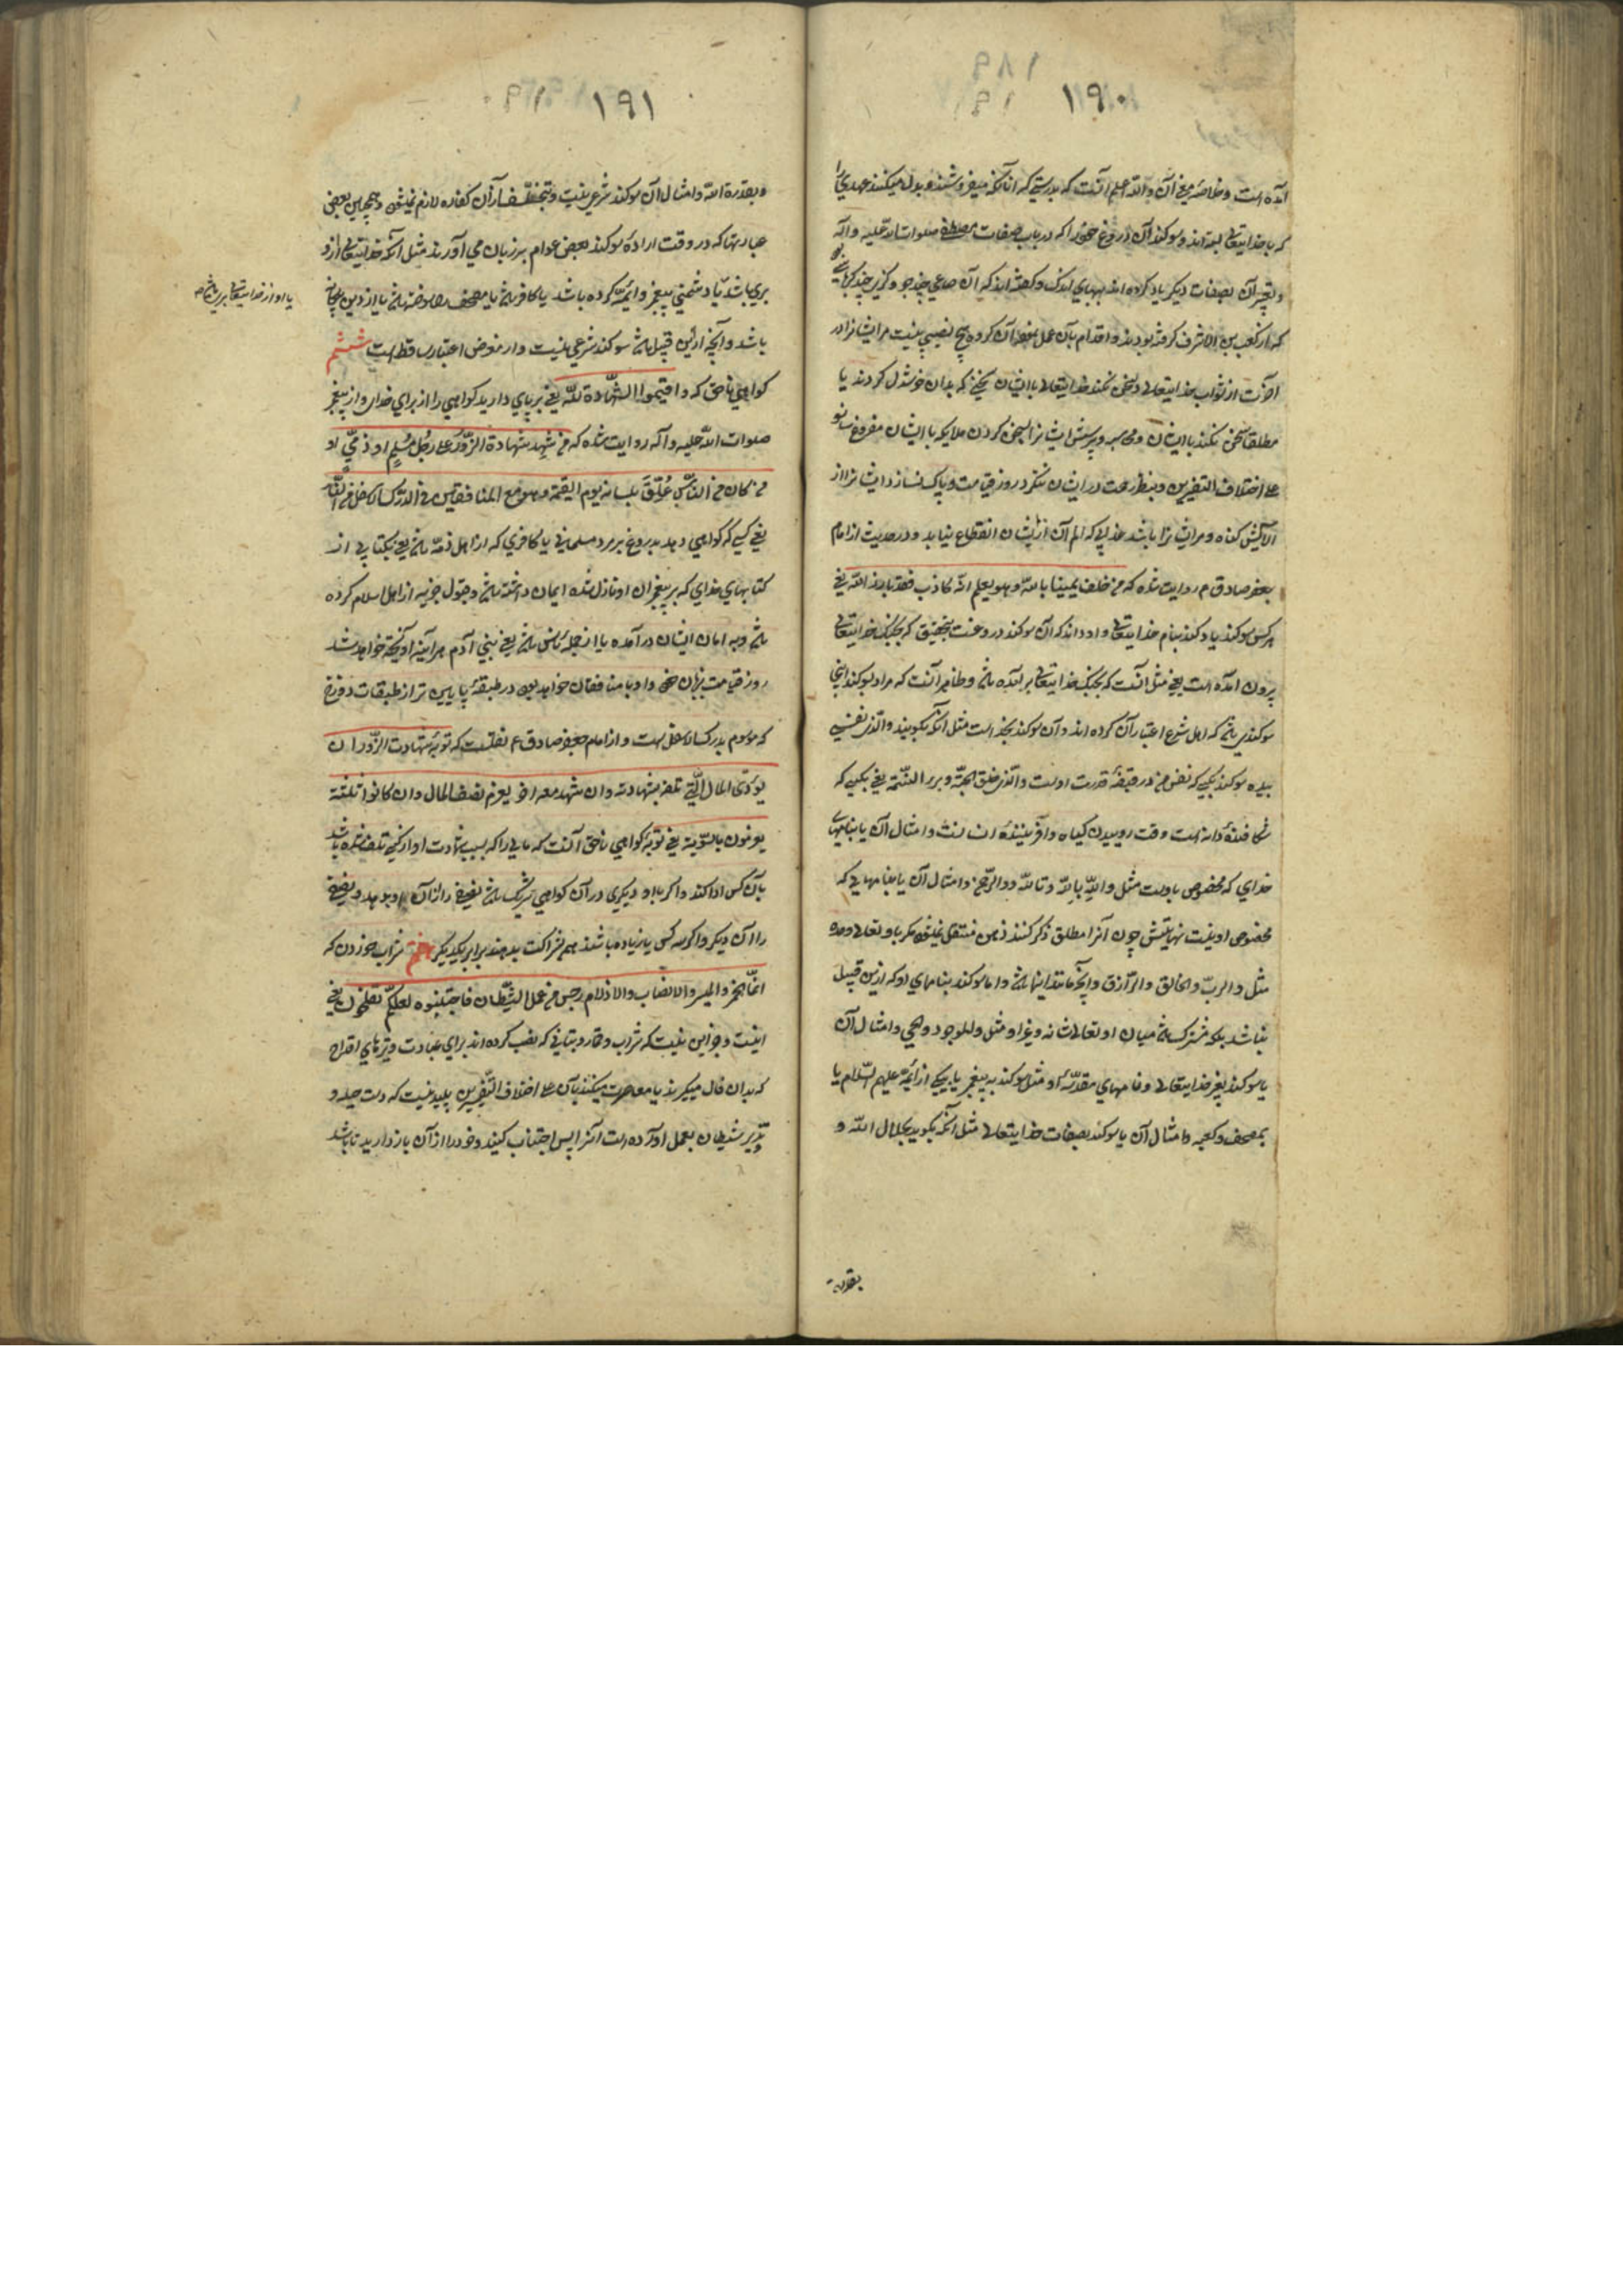 ١٩٠
آمده است و خلاصه معنی آن والله اعلم آنست که بدرستی که آنانکه میفروشند و بدل میکنند عهدی را
که با خدایتعالی بسته‌اند و سوکند آن دروغ خود را که در باب صفات مصطفی صلوات الله علیه و آله
و تغییر آن بصفات دیکر یاد کرده‌اند ببهای اندک و کفته‌اند که آن صاعی چند جو و کزی چند کرباس بود
که از کعب بن الاشرف کرفته بودند و اقدام بآن عمل نموده آن کروه هیچ نصیبی نیست مر ایشانرا در
آخرت از ثواب خدایتعالی و سخن نکند خدایتعالی با ایشان سخنی که بدان خوشدل کردند یا
مطلقا سخن نکند با ایشان و محاسبه و پرسش ایشانرا بسخن کردن ملایکه با ایشان مفروغ سازد
علی اختلاف التفسیرین و بنظر رحمت در ایشان ننکرد روز قیامت و پاک نسازد ایشانرا از
آلایش کناه و مر ایشانرا باشد عذابی که الم آن از ایشان انقطاع نیابد و در حدیث از امام
جعفر صادق ع م روایت شده که من حلف یمینا بالله و هو یعلم انه کاذب فقد بارز الله یعنی
هر کس سوکند یاد کند بنام خدایتعالی و او داند که آن سوکند دروغست بتحقیق که بجنک خدایتعالی
بیرون آمده است یعنی مثل آنست که بجنک خدایتعالی برآمده باشد و ظاهر آنست که مراد بسوکند اینجا
سوکندی باشد که اهل شرع اعتبار آن کرده‌اند و آن سوکند بخداست مثل آنکه بکویند والذی نفسی
بیده سوکند بکسی که نفس من در قبضه قدرت اوست والذی فلق الحبة و برء النسمة یعنی بکسی که
شکافنده دانه است وقت روییدن کیاه و آفریننده انسانست و امثال آن یا بنامهای
خدای که مخصوص باوست مثل والله بالله و تالله و والرحمن و امثال آن یا بنامهایی که
مخصوص او نیست نهایتش چون آنرا مطلق ذکر کنند ذهن منتقل نمیشود مکر باو تعالی وحده
مثل والرب والخالق والرازق و آنچه مانند اینها باشد و اما سوکند بنامهای او که ازین قبیل
نباشد بلکه مشترک باشد میان او تعالی شانه و غیر او مثل والموجود والحی و امثال آن
یا سوکند بغیر خدایتعالی و نامهای مقدسه او مثل سوکند به پیغمبر یا بیکی از ائمه علیهم السلام یا
بمصحف و کعبه و امثال آن یا سوکند بصفات خدایتعالی مثل آنکه بکوید بجلال الله و
بقدرة
١٩١
و بقدرة الله و امثال آن سوکند شرعی نیست و بتخلف از آن کفاره لازم نمیشود و همچنین بعضی
عبارتها که در وقت اراده سوکند بعضی عوام بر زبان می‌آورند مثل آنکه خدایتعالی ازو
بری باشد یا دشمنی پیغمبر و ائمه کرده باشد یا کافر باشد یا مصحف را سوخته باشد یا از دین بیکانه
یا او از خدایتعالی بری باشد صح
باشد و آنچه ازین قبیل باشد سوکند شرعی نیست و از معرض اعتبار ساقط است ششم
کواهی ناحق که و اقیموا الشهادة لله یعنی بر پای دارید کواهی را از برای خدا و از پیغمبر
صلوات الله علیه و آله روایت شده که من شهد شهادة الزور علی رجل مسلم او ذمی او
من کان من الناس علق بلسانه یوم القیمة و هو مع المنافقین فی الدرک الاسفل من النار
یعنی کسی که کواهی دهد بدروغ بر مرد مسلمانی یا کافری که از اهل ذمه باشد یعنی بکتابی از
کتابهای خدای که بر پیغمبران او نازل شده ایمان داشته باشد و قبول جزیه از اهل اسلام کرده
باشد و به امان ایشان درآمده یا از جمله ناس باشد یعنی بنی آدم هر آینه آویخته خواهد شد
روز قیامت بزبان خود و او با منافقان خواهد بود در طبقه پایین‌تر از طبقات دوزخ
که موسوم بدرک اسفل است و از امام جعفر صادق ع م نقلست که توبة شهادت الزور ان
یؤدی المال الذی تلف بشهادته و ان شهد معه آخر یغرم نصف المال و ان کانوا ثلثة
یغرمون بالسویة یعنی توبه کواهی ناحق آنست که مالی را که بسبب شهادت او از کسی تلف شده باشد
بآن کس ادا کند و اکر با او دیکری در آن کواهی شریک باشد نصفی را از آن او بدهد و نصفی
را آن دیکر و اکر سه کس یا زیاده باشند هم شراکت بدهند برابر یکدیکر هفتم شراب خوردن که
انما الخمر والمیسر والانصاب والازلام رجس من عمل الشیطان فاجتنبوه لعلکم تفلحون یعنی
اینست و جز این نیست که شراب و قمار و بتانی که نصب کرده‌اند برای عبادت و تیرهای اقداح
که بدان فال میکیرند یا مقامرت میکنند بآن علی اختلاف التفسیرین پلیدیست که دست حیله و
تذویر شیطان بعمل آورده است آنرا پس اجتناب کنید و خود را از آن باز دارید تا باشد